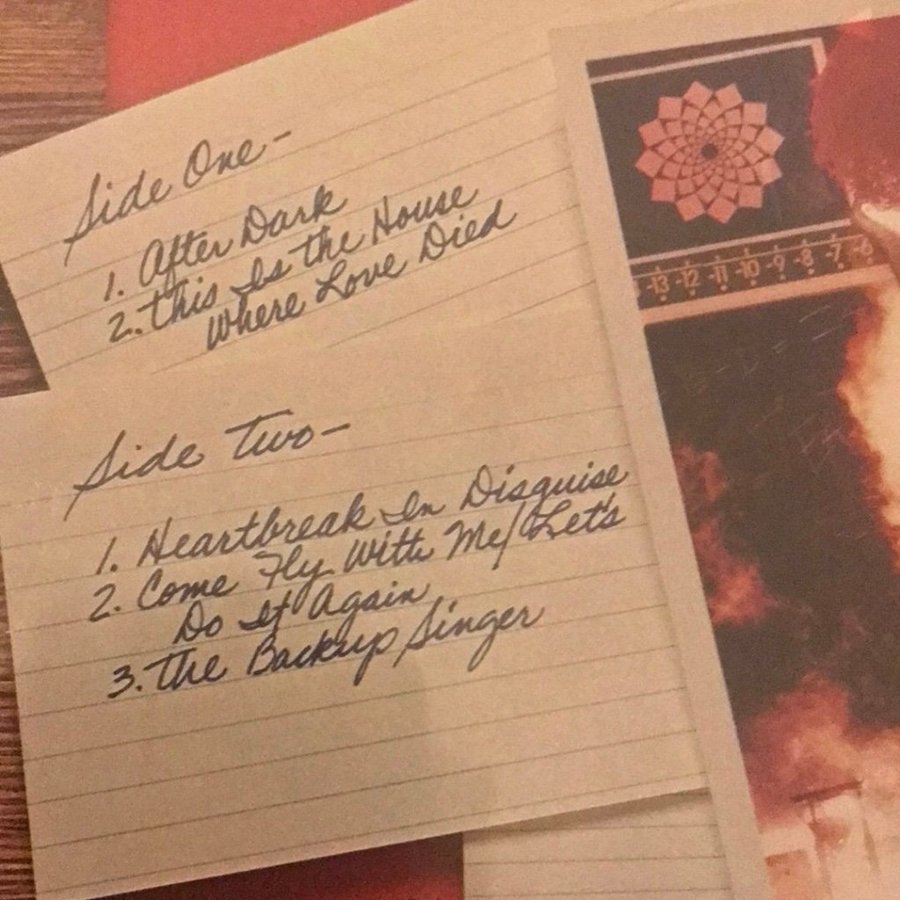 Side One-
1. After Dark
2. This Is the House
Where Love Died
Side Two-
1. Heartbreak In Disguise
2. Come Fly With Me/Let's
Do It Again
3. The Backup Singer
-13 -12 -11 -10 -9 -8 -7 -6